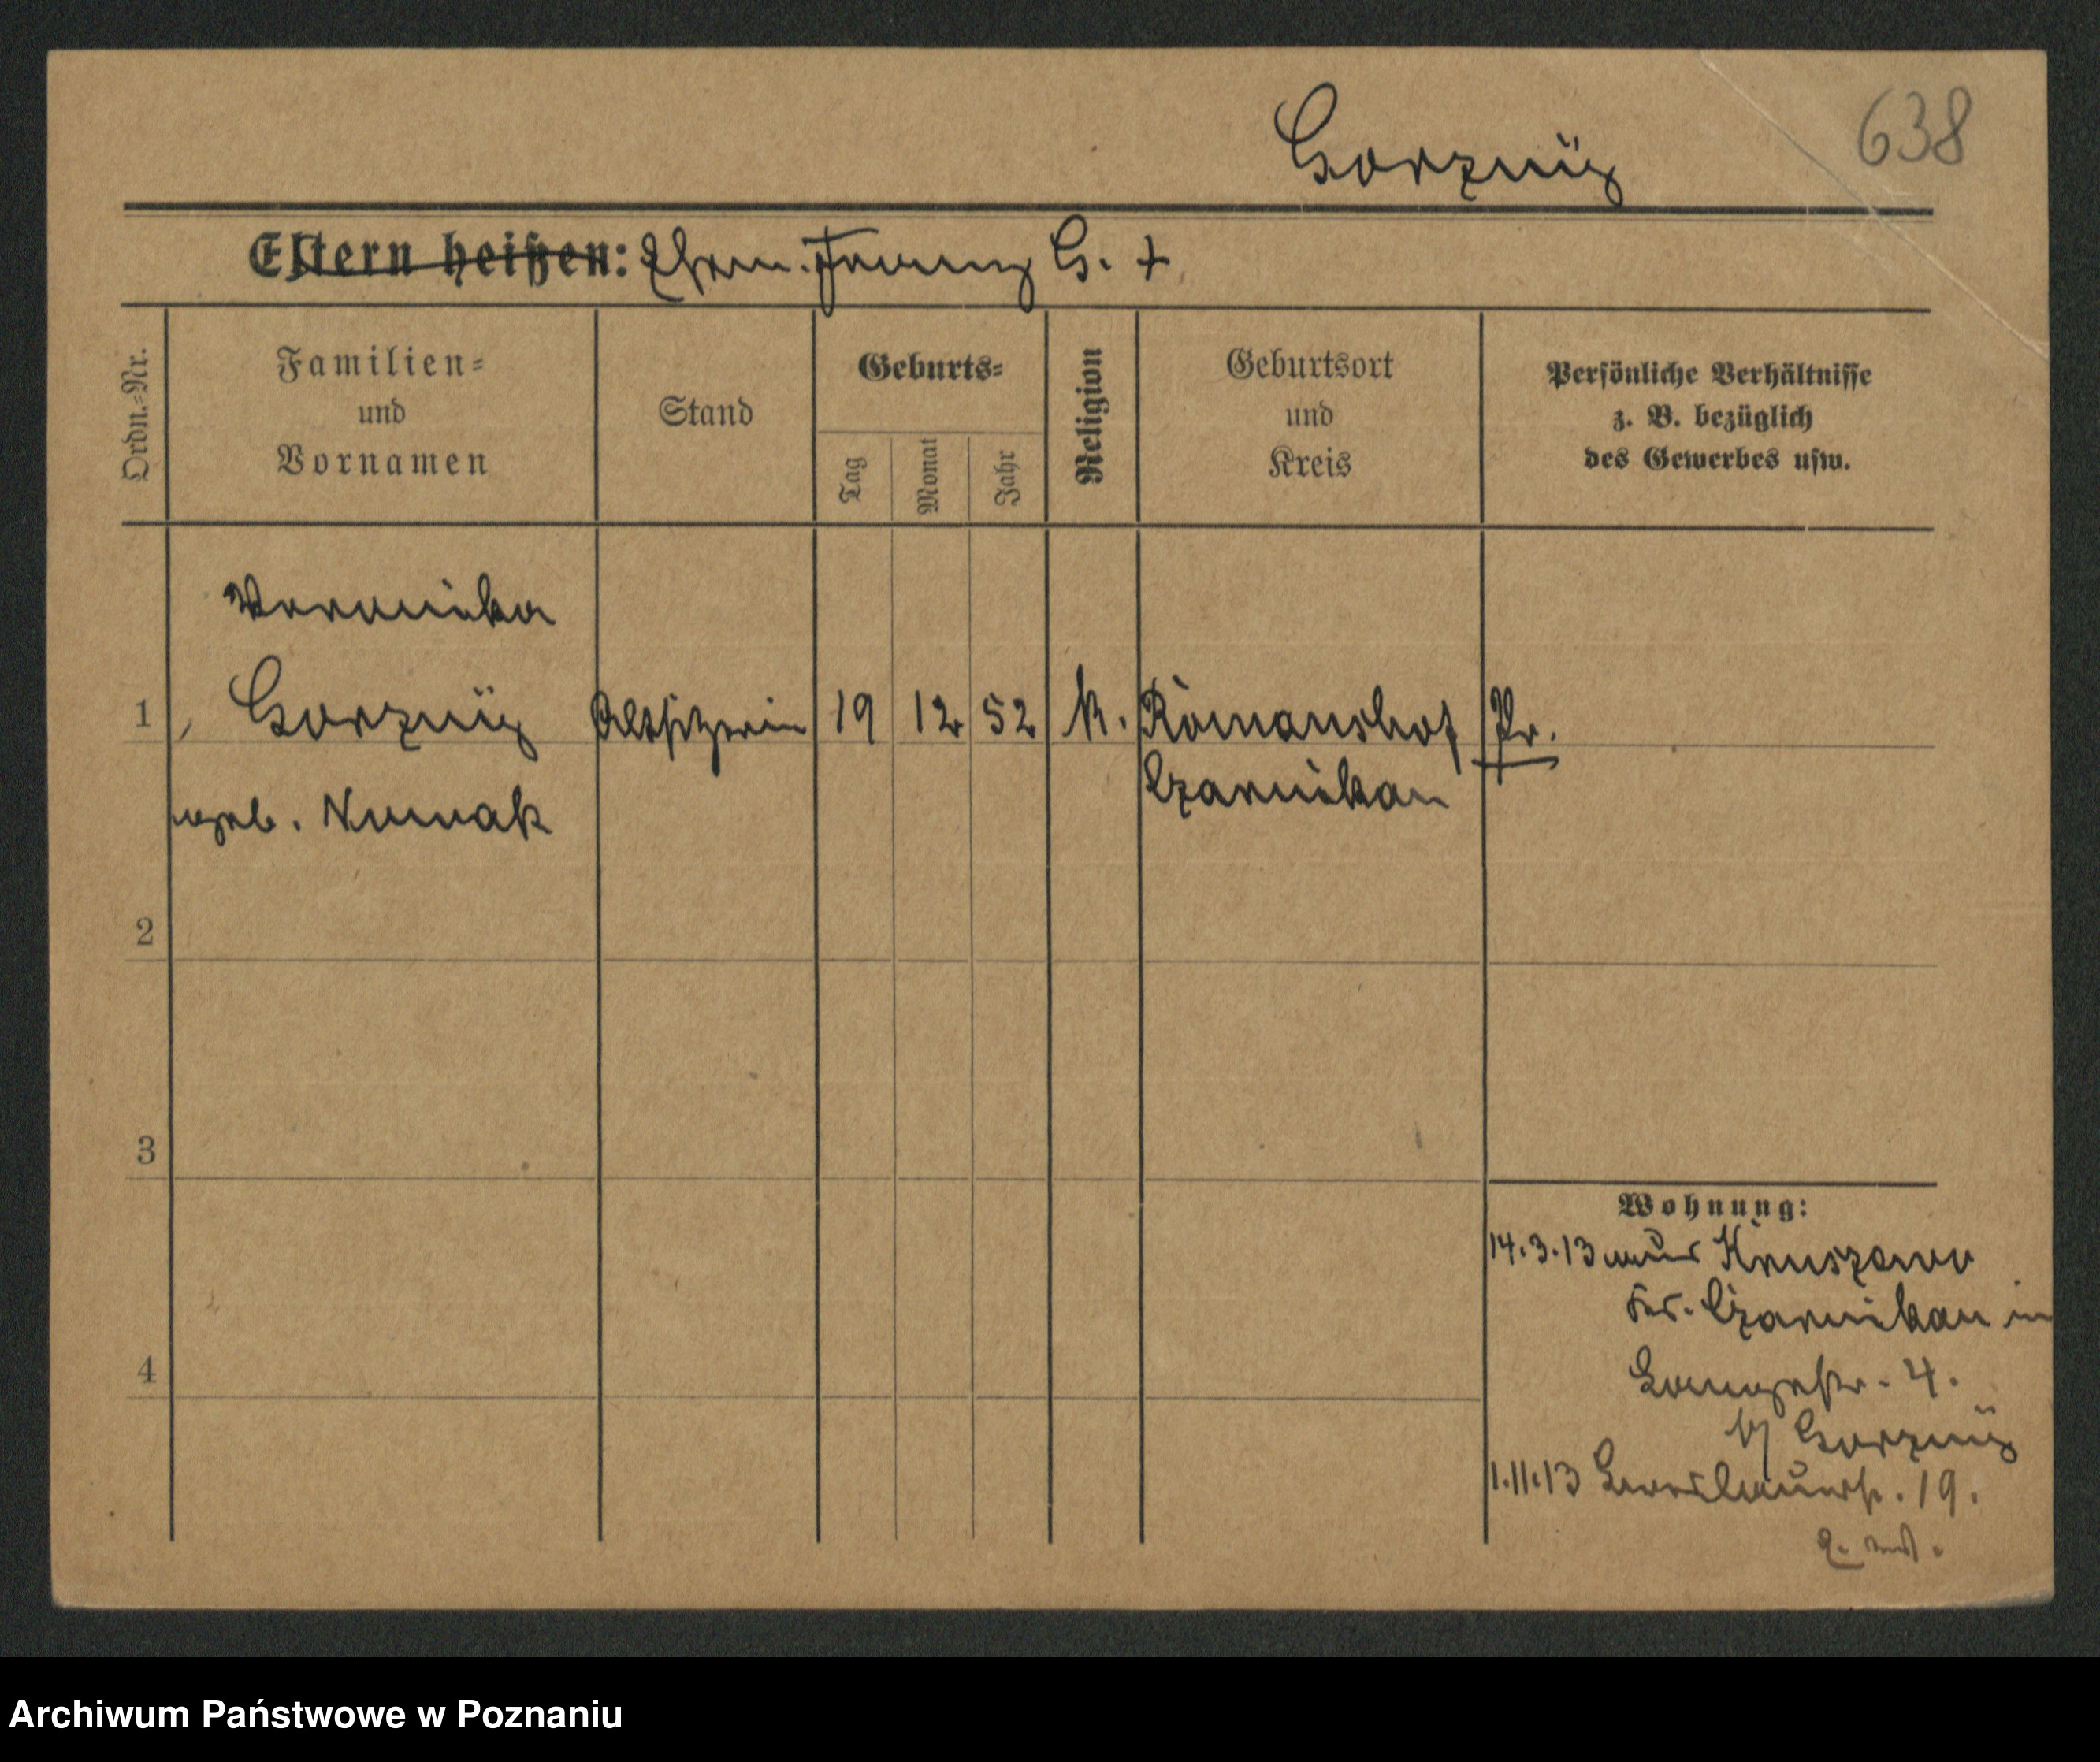 Gorzny
638
Eltern heißen: Ehem. Franz G. +
Ordn.=Nr.
Familien=
und
Vornamen
Stand
Geburts=
Tag
Monat
Jahr
Religion
Geburtsort
und
Kreis
Persönliche Verhältnisse
z. B. bezüglich
des Gewerbes usw.
Veronika
1 Gorzny Altsitzerin 19 12 52 k. Romanshof Pr.
Czarnikau
geb. Nowak
2
3
4
Wohnung:
14.3.13 aus Kruszewo
Kr. Czarnikau in
Langestr. 4.
b/ Gorzny
1.11.13 19.
Archiwum Państwowe w Poznaniu